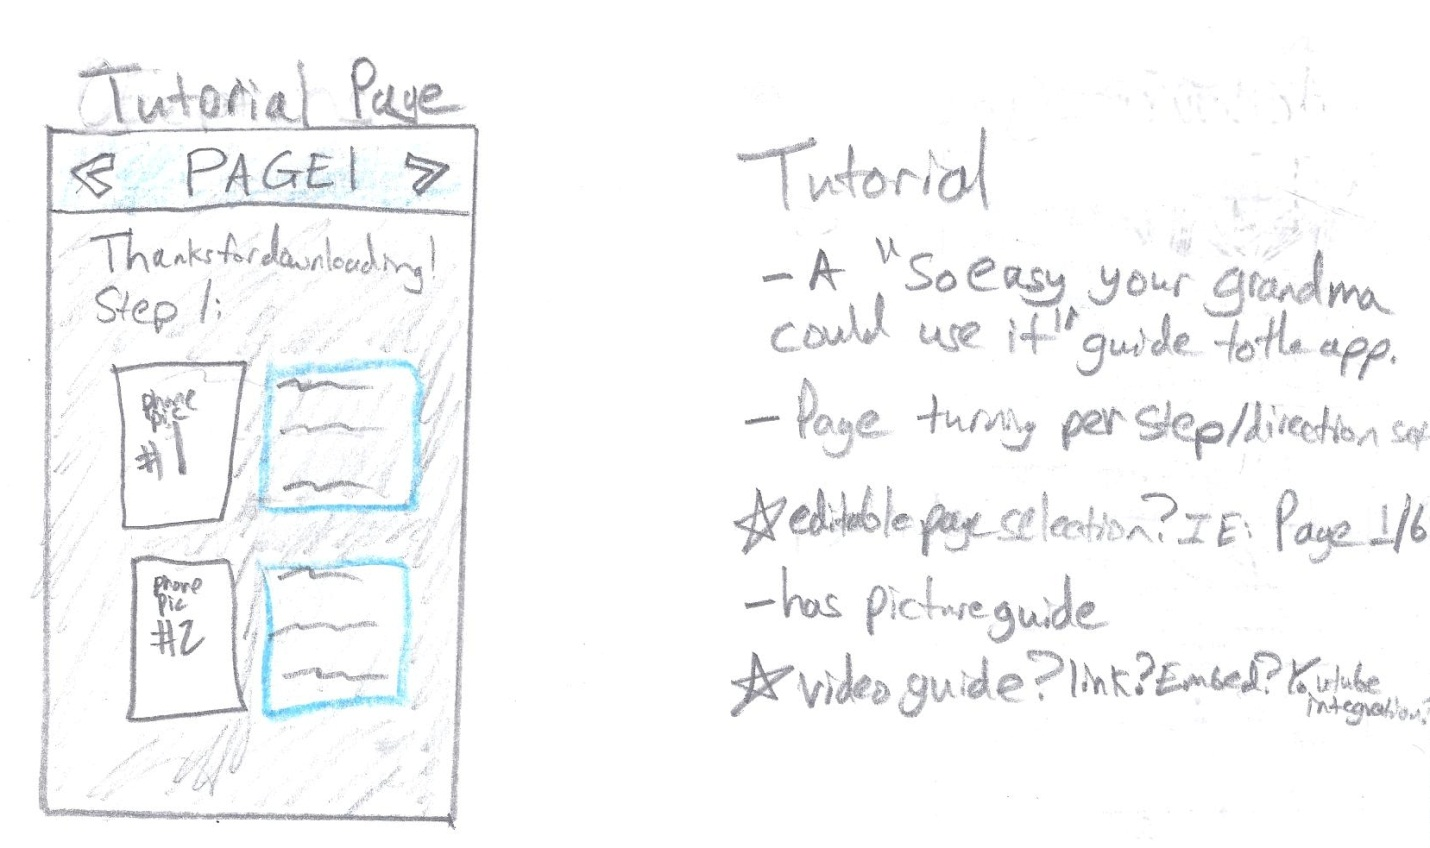 Tutorial Page
PAGE 1
Thanks for downloading!
Step 1:
phone
pic
#1
phone
pic
#2
Tutorial
- A "So easy your grandma
could use it" guide to the app.
- Page turning per step/direction set
☆ editable page selection? IE: Page 1/6
- has picture guide
☆ video guide? link? Embed? Youtube
integration?